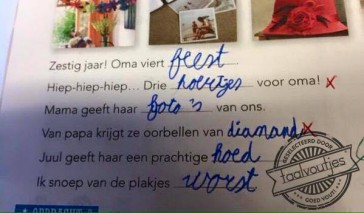 Zestig jaar! Oma viert feest
Hiep-hiep-hiep... Drie hoertjes voor oma! x
Mama geeft haar foto's van ons.
Van papa krijgt ze oorbellen van diamand x
Juul geeft haar een prachtige hoed
Ik snoep van de plakjes worst
GESELECTEERD DOOR
taalvoutjes
GOED VOUT!